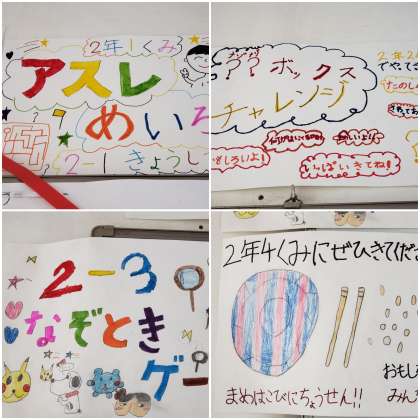 2年1くみ
アスレ
めいろ
2-1きょうし
?? ボックス
チャレンジ
2年2
でやってき
たのし
おもしろいよ!
いっぱいきてね!
2-3
なぞとき
ゲ
2年4くみにぜひきてくださ
おもし
みん
まめはこびにちょうせん!!